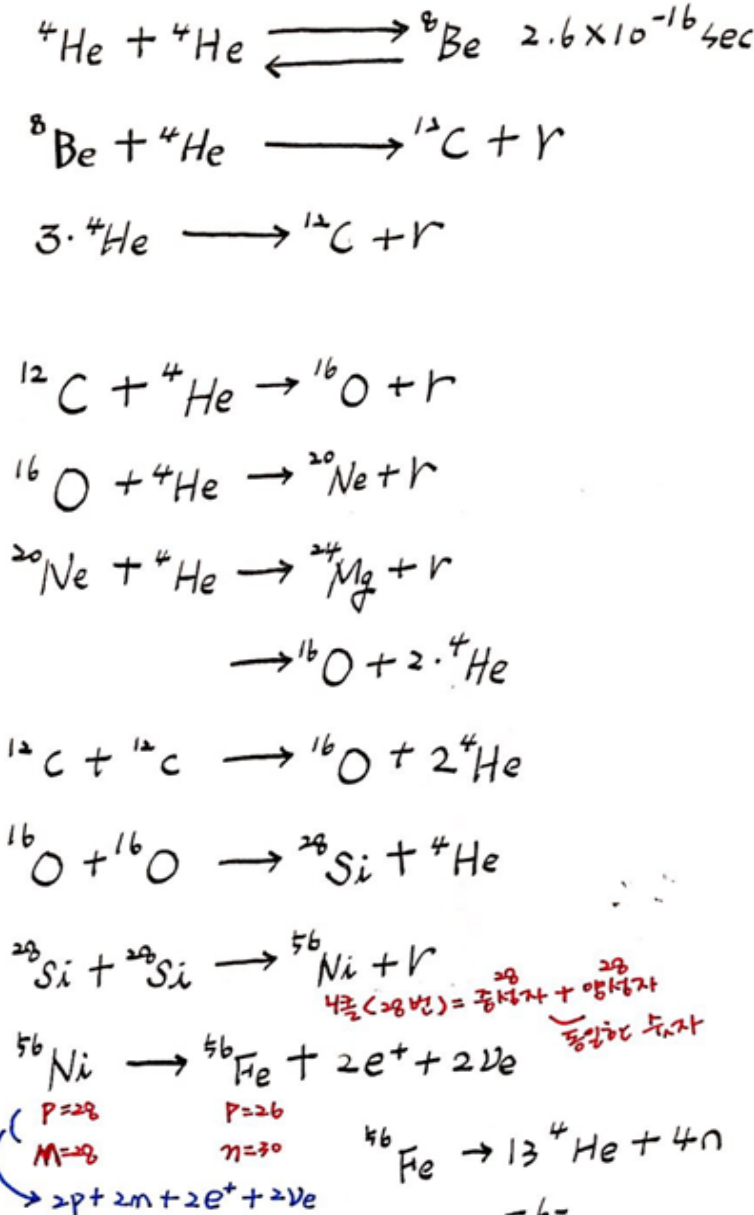 ⁴He + ⁴He ⇄ ⁸Be 2.6×10⁻¹⁶ sec
⁸Be + ⁴He → ¹²C + r
3·⁴He → ¹²C + r
¹²C + ⁴He → ¹⁶O + r
¹⁶O + ⁴He → ²⁰Ne + r
²⁰Ne + ⁴He → ²⁴Mg + r
→ ¹⁶O + 2·⁴He
¹²C + ¹²C → ¹⁶O + 2⁴He
¹⁶O + ¹⁶O → ²⁸Si + ⁴He
²⁸Si + ²⁸Si → ⁵⁶Ni + r
28 28
니콜(28번) = 중성자 + 양성자
동일한 숫자
⁵⁶Ni → ⁵⁶Fe + 2e⁺ + 2νe
P=28 P=26
M=28 n=30
⁵⁶Fe → 13⁴He + 4n
→ 2p + 2n + 2e⁺ + 2νe